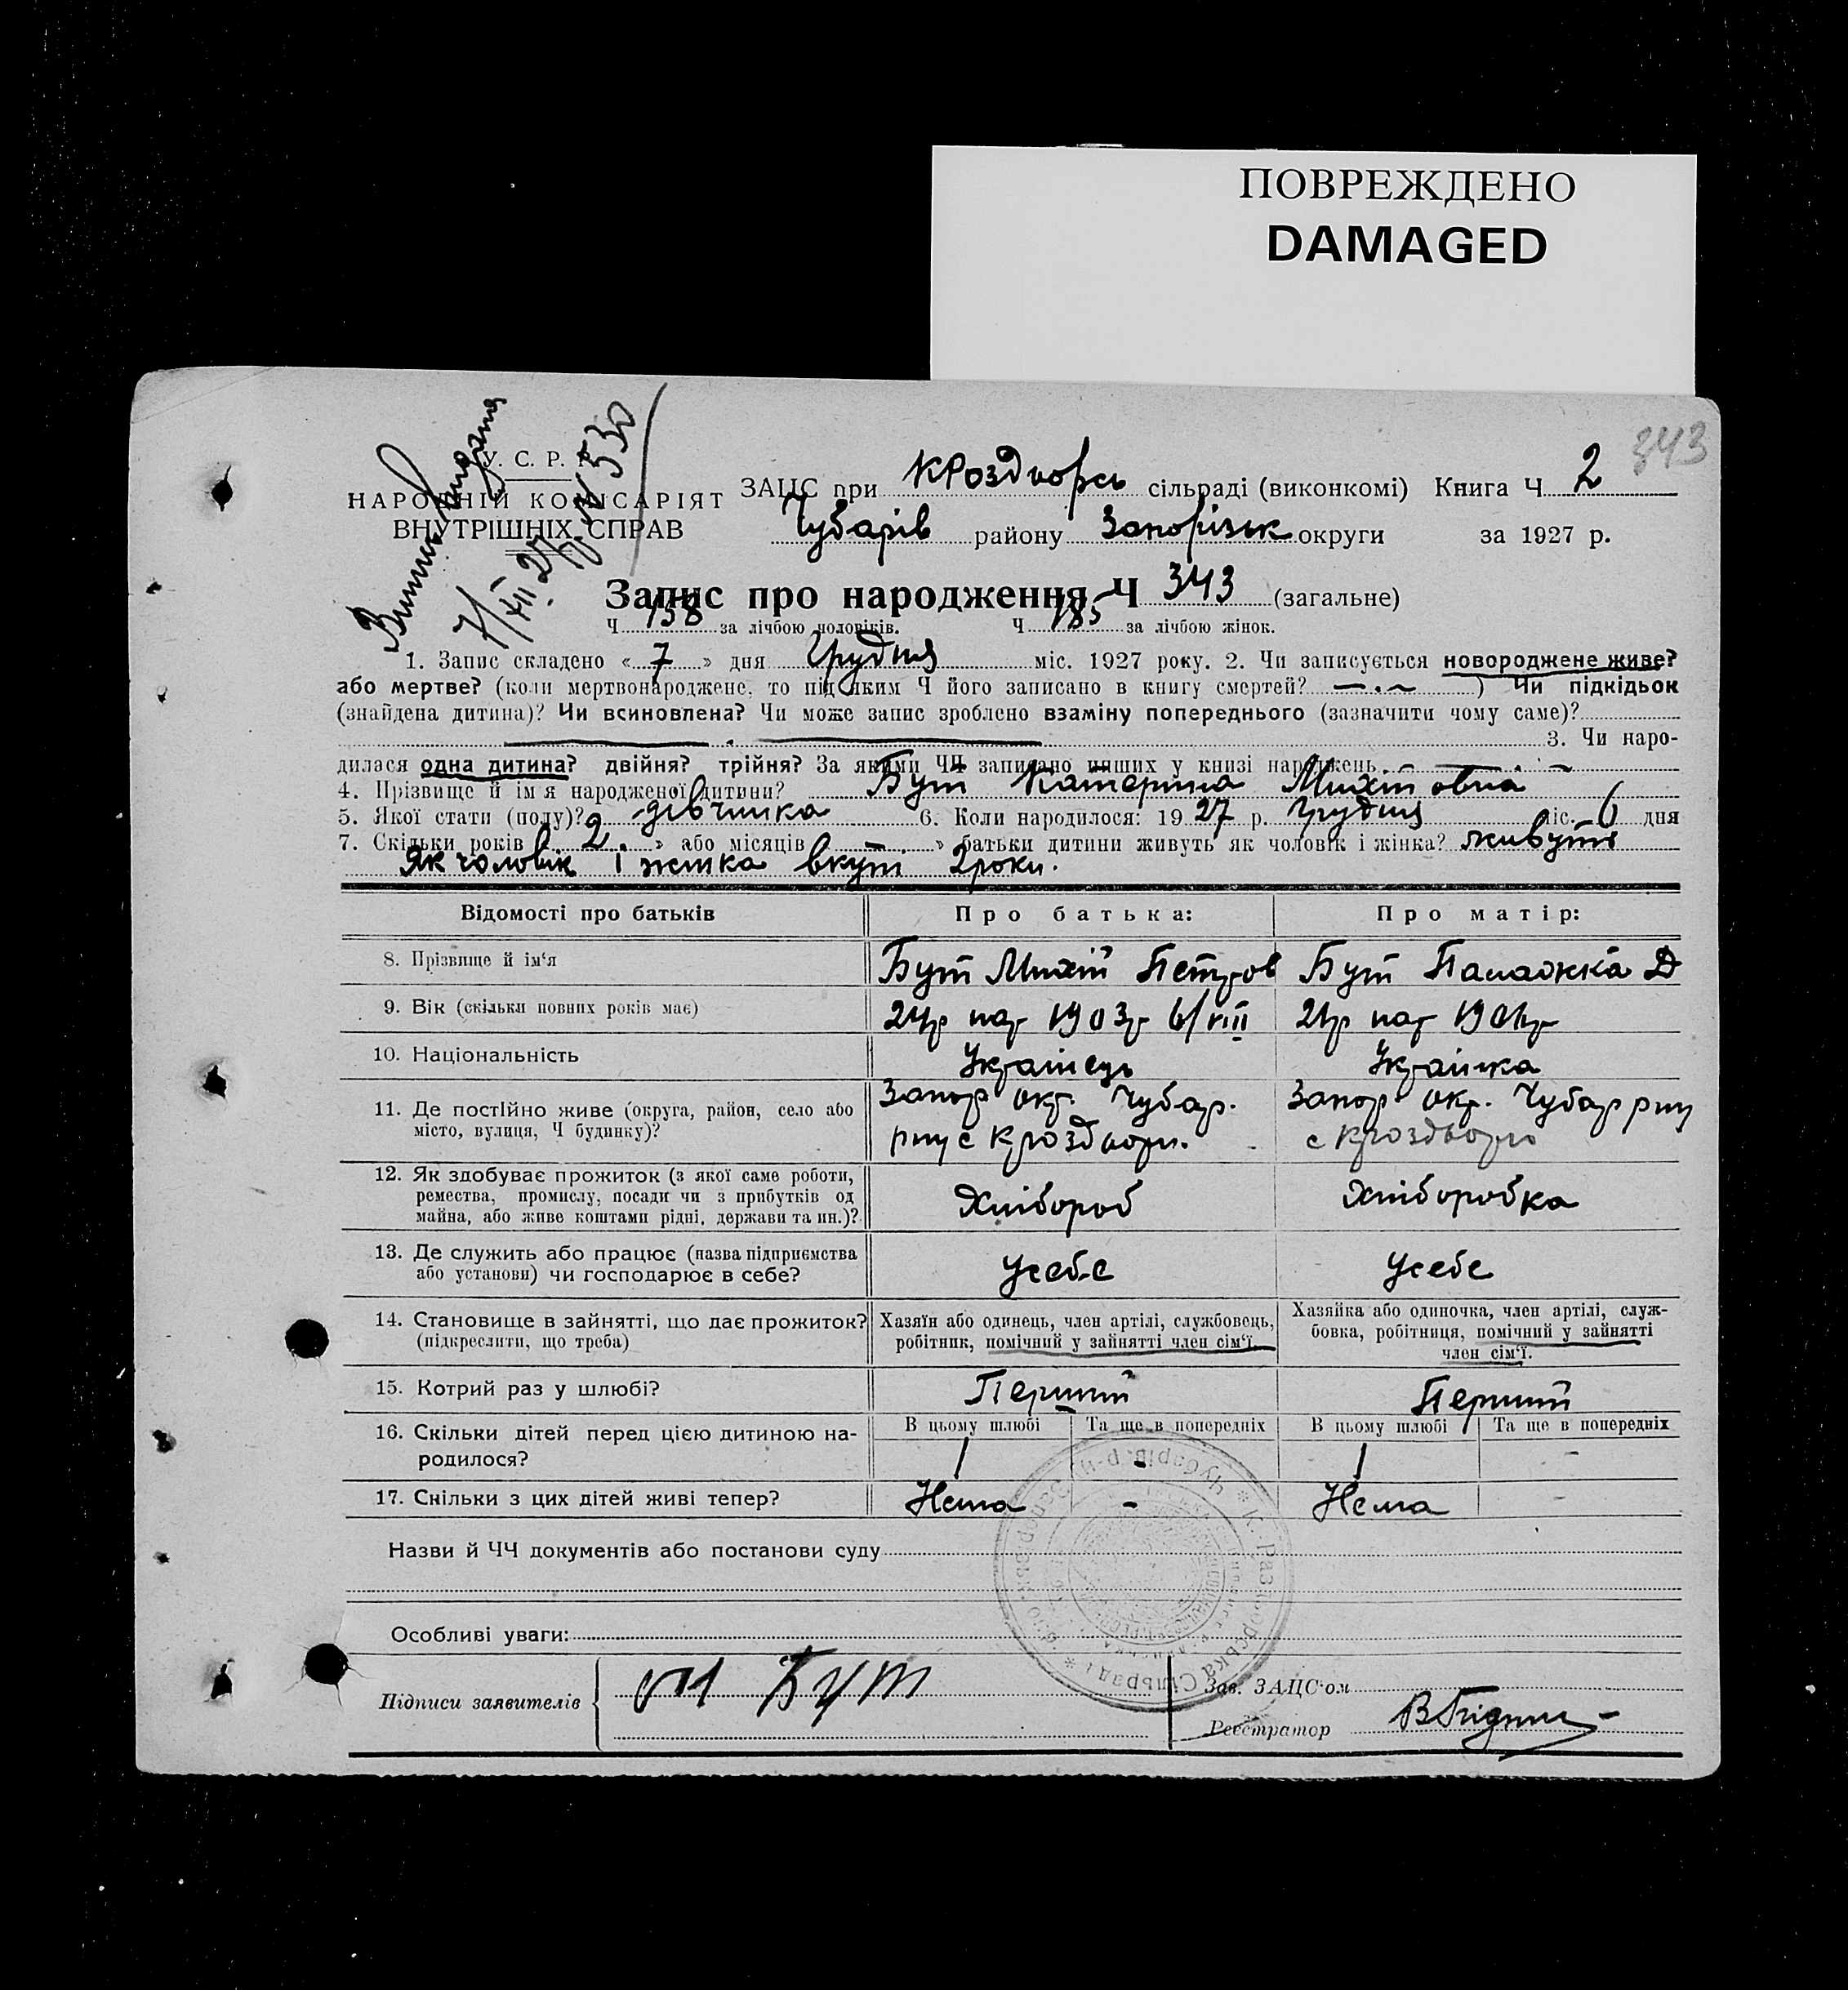 ПОВРЕЖДЕНО
DAMAGED
343
У. С. Р. Р.
НАРОДНІЙ КОМІСАРІЯТ
ВНУТРІШНІХ СПРАВ
Витяг видана
7/XII 27р. № 530
ЗАЦС при КРоздворсь сільраді (виконкомі) Книга Ч 2
Чубарів району Запорізьк округи за 1927 р.
Запис про народження Ч 343 (загальне)
Ч 158 за лічбою чоловіків. Ч 185 за лічбою жінок.
1. Запис складено « 7 » дня Грудня міс. 1927 року. 2. Чи записується новороджене живе?
або мертве? (коли мертвонароджене, то під яким Ч його записано в книгу смертей? ) Чи підкідьок
(знайдена дитина)? Чи всиновлена? Чи може запис зроблено взаміну попереднього (зазначити чому саме)?
3. Чи наро-
дилася одна дитина? двійня? трійня? За якими ЧЧ записано инших у книзі народжень
4. Прізвище й ім'я народженої дитини? Бут Катерина Михайловна
5. Якої стати (полу)? дівчинка 6. Коли народилося: 19 27 р. Грудня міс. 6 дня
7. Скільки років « 2 » або місяців » батьки дитини живуть як чоловік і жінка? живуть
Як чоловік і жінка вкупі 2 роки.
Відомості про батьків Про батька: Про матір:
8. Прізвище й ім'я Бут Михай Петров Бут Палажка Д
9. Вік (скільки повних років має) 24р нар 1903р 6/VIII 21р нар 1906р
10. Національність Українець Українка
11. Де постійно живе (округа, район, село або місто, вулиця, Ч будинку)? Запор окр. Чубар. рну с Кроздори. Запор окр. Чубар рну с Кроздори
12. Як здобуває прожиток (з якої саме роботи, ремества, промислу, посади чи з прибутків од майна, або живе коштами рідні, держави та ин.)? Хлібороб Хліборобка
13. Де служить або працює (назва підприємства або установи) чи господарює в себе? Усебе Усебе
14. Становище в зайнятті, що дає прожиток? (підкреслити, що треба) Хазяїн або одинець, член артілі, службовець, робітник, помічний у зайнятті член сім'ї. Хазяйка або одиночка, член артілі, служ- бовка, робітниця, помічний у зайнятті член сім'ї.
15. Котрий раз у шлюбі? Перший Перший
16. Скільки дітей перед цією дитиною на- родилося? В цьому шлюбі 1 Та ще в попередніх - В цьому шлюбі 1 Та ще в попередніх -
17. Скільки з цих дітей живі тепер? Нема - Нема -
Назви й ЧЧ документів або постанови суду
Особливі уваги:
Підписи заявителів Бут
Зав. ЗАЦС'ом
Реєстратор